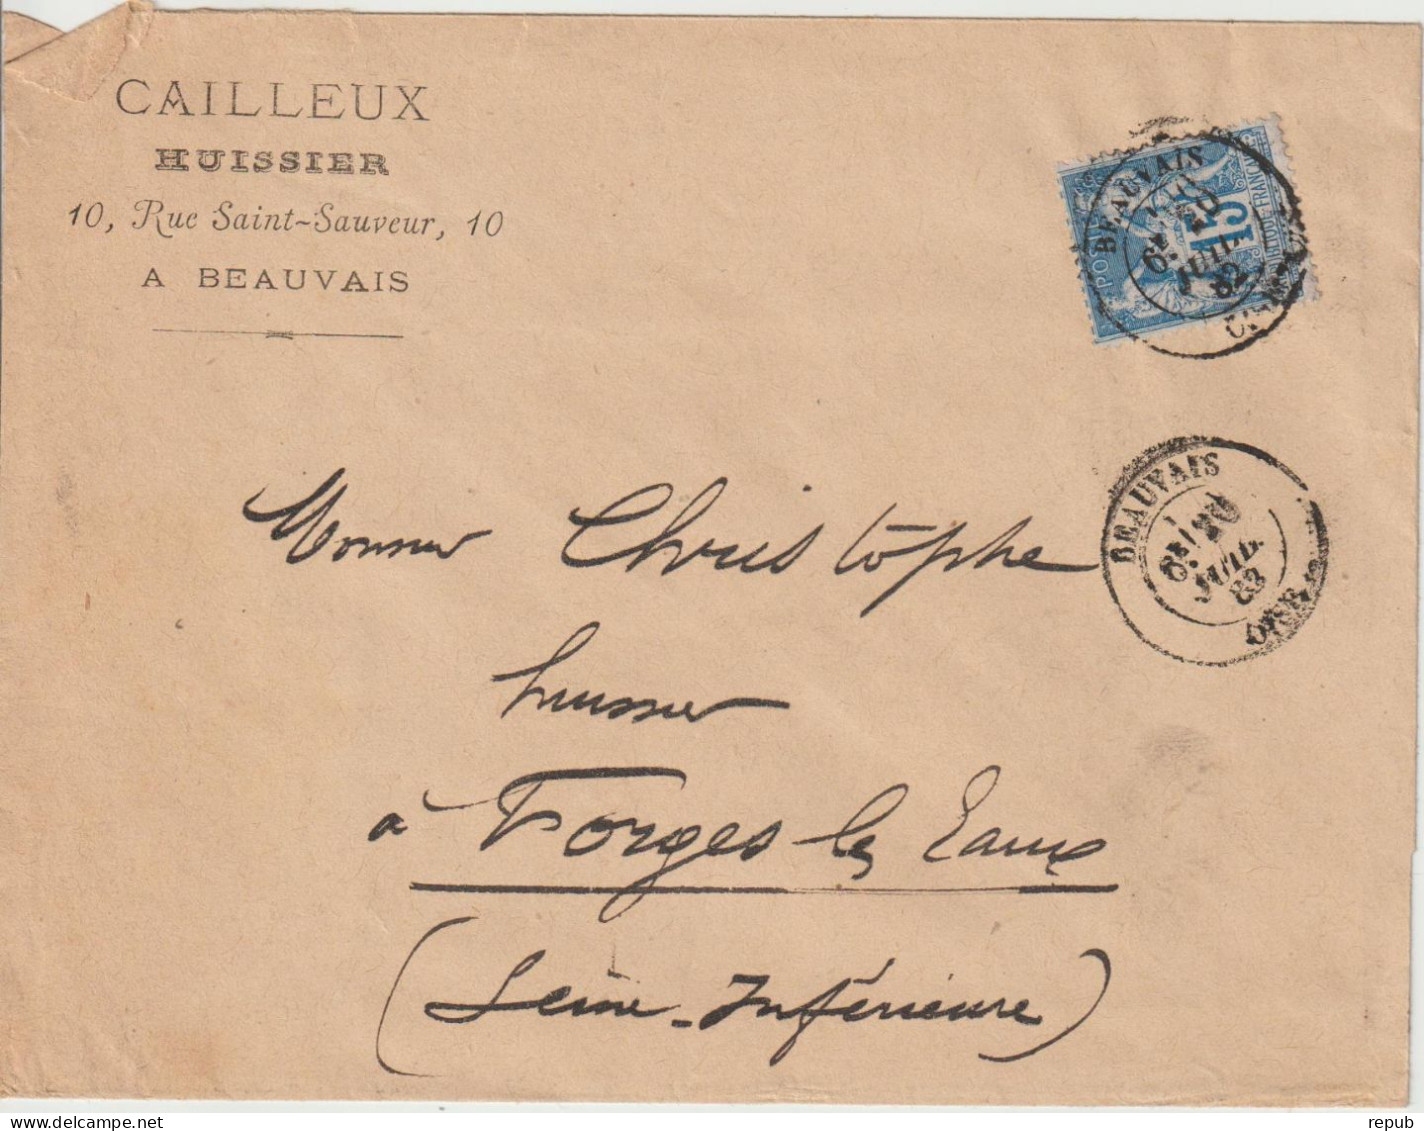 CAILLEUX
HUISSIER
10, Rue Saint-Sauveur, 10
A BEAUVAIS
POSTES
15
BEAUVAIS
6E
20
JUIL.
82
OISE
BEAUVAIS
6E
20
JUIL.
83
OISE
Monsieur Christophe
huissier
à Forges les Eaux
(Seine-Inférieure)
repub